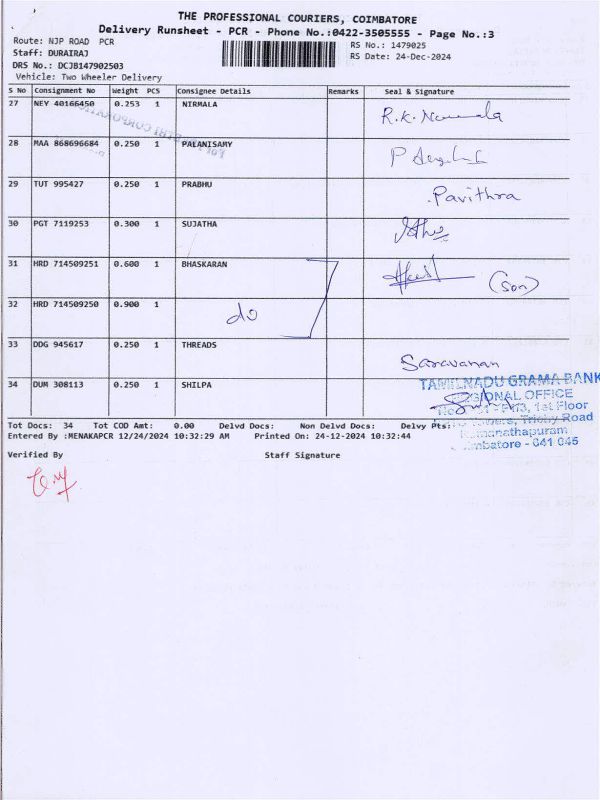 THE PROFESSIONAL COURIERS, COIMBATORE
Delivery Runsheet - PCR - Phone No.:0422-3505555 - Page No.:3
Route: NJP ROAD PCR
RS No.: 1479025
Staff: DURAIRAJ
RS Date: 24-Dec-2024
DRS No.: DCJB147902503
Vehicle: Two Wheeler Delivery
S No Consignment No Weight PCS Consignee Details Remarks Seal & Signature
27 NEY 40166450 0.253 1 NIRMALA
R.K. Nirmala
28 MAA 868696684 0.250 1 PALANISAMY
29 TUT 995427 0.250 1 PRABHU Pavithra
30 PGT 7119253 0.300 1 SUJATHA
31 HRD 714509251 0.600 1 BHASKARAN (Son)
32 HRD 714509250 0.900 1 do
33 DDG 945617 0.250 1 THREADS
Saravanan
34 DUM 308113 0.250 1 SHILPA
TAMILNADU GRAMA BANK
REGIONAL OFFICE
1st Floor
Towers, Trichy Road
Ramanathapuram
Coimbatore - 641 045
Tot Docs: 34 Tot COD Amt: 0.00 Delvd Docs: Non Delvd Docs: Delvy Pts:
Entered By :MENAKAPCR 12/24/2024 10:32:29 AM Printed On: 24-12-2024 10:32:44
Verified By Staff Signature